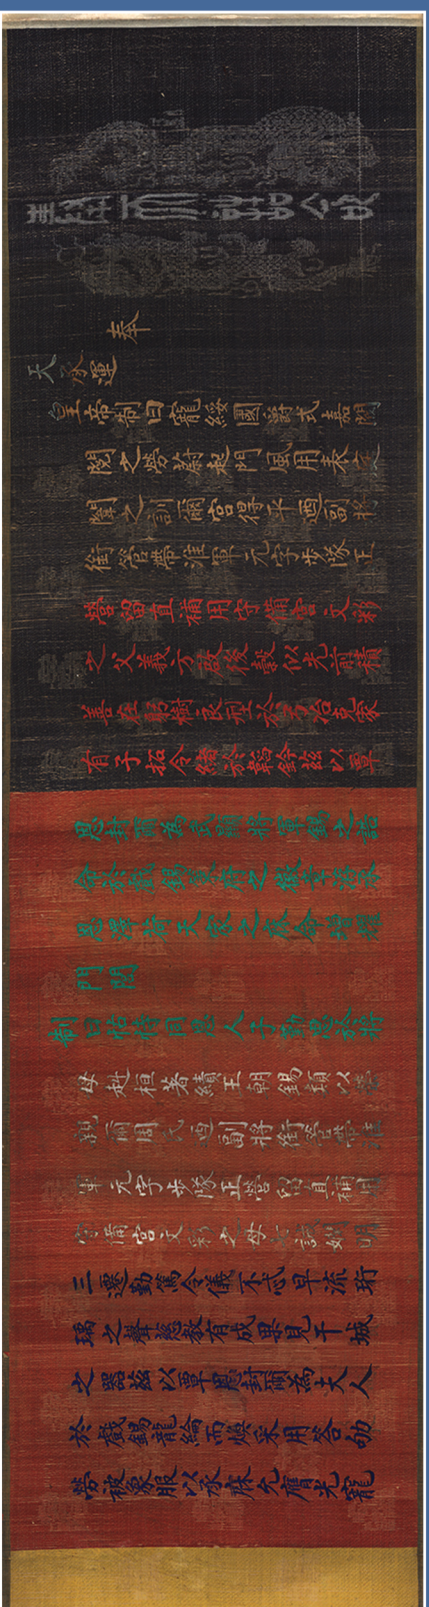 奉天誥命
奉
天承運
皇帝制曰寵綏國爵式嘉閥
閱之勞蔚起門風用表庭
闈之訓爾宮得平迺副將
銜管帶淮軍元字步隊正
營留直補用守備宮文彩
之父義方啟後穀似光前積
善在躬樹良型於弓冶克家
有子拓令緒於韜鈐茲以覃
恩封爾為武顯將軍錫之誥
命於戲錫策府之徽章洊承
恩澤荷天家之庥命增耀
門閭
制曰怙恃同恩人子勤思於將
母赳桓著績王朝錫類以榮
親爾周氏迺副將銜管帶淮
軍元字步隊正營留直補用
守備宮文彩之母七誡嫻明
三遷勤篤令儀不忒早流珩
瑀之聲慈教有成果見干城
之器茲以覃恩封爾為夫人
於戲錫龍綸而煥采用答劬
勞被象服以承庥允膺光寵